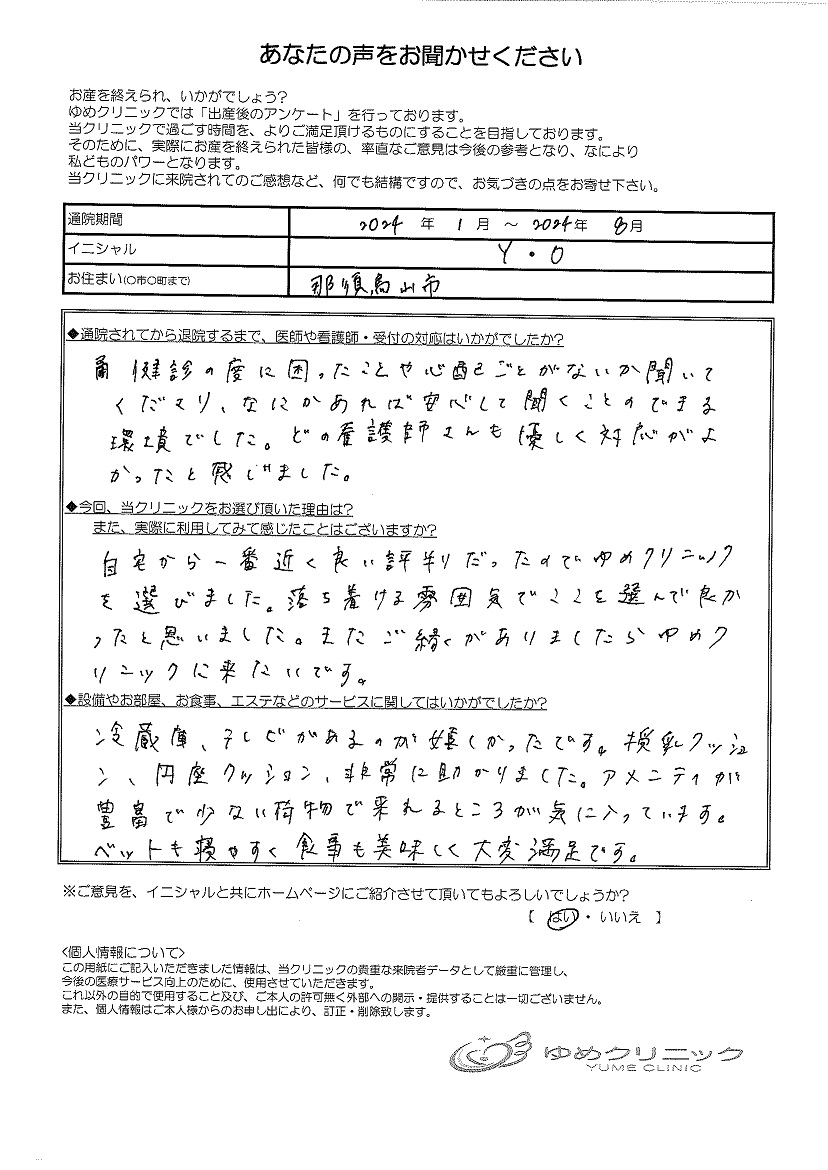 あなたの声をお聞かせください
お産を終えられ、いかがでしょう?
ゆめクリニックでは「出産後のアンケート」を行っております。
当クリニックで過ごす時間を、よりご満足頂けるものにすることを目指しております。
そのために、実際にお産を終えられた皆様の、率直なご意見は今後の参考となり、なにより
私どものパワーとなります。
当クリニックに来院されてのご感想など、何でも結構ですので、お気づきの点をお寄せ下さい。
通院期間 2024 年 1 月 ～ 2024 年 8 月
イニシャル Y・O
お住まい(○市○町まで) 那須烏山市
◆通院されてから退院するまで、医師や看護師・受付の対応はいかがでしたか?
健診の度に困ったことや心配ごとがないか聞いて
くださり、なにかあれば安心して聞くことのできる
環境でした。どの看護師さんも優しく対応がよ
かったと感じました。
◆今回、当クリニックをお選び頂いた理由は?
また、実際に利用してみて感じたことはございますか?
自宅から一番近く良い評判だったのでゆめクリニック
を選びました。落ち着ける雰囲気でここを選んで良か
ったと思いました。またご縁がありましたらゆめク
リニックに来たいです。
◆設備やお部屋、お食事、エステなどのサービスに関してはいかがでしたか?
冷蔵庫、テレビがあるのが嬉しかったです。授乳クッショ
ン、円座クッション、非常に助かりました。アメニティが
豊富で少ない荷物で来れるところが気に入っています。
ベットも寝やすく食事も美味しく大変満足です。
※ご意見を、イニシャルと共にホームページにご紹介させて頂いてもよろしいでしょうか?
【 はい ・ いいえ 】
<個人情報について>
この用紙にご記入いただきました情報は、当クリニックの貴重な来院者データとして厳重に管理し、
今後の医療サービス向上のために、使用させていただきます。
これ以外の目的で使用すること及び、ご本人の許可無く外部への開示・提供することは一切ございません。
また、個人情報はご本人様からのお申し出により、訂正・削除致します。
ゆめクリニック
YUME CLINIC